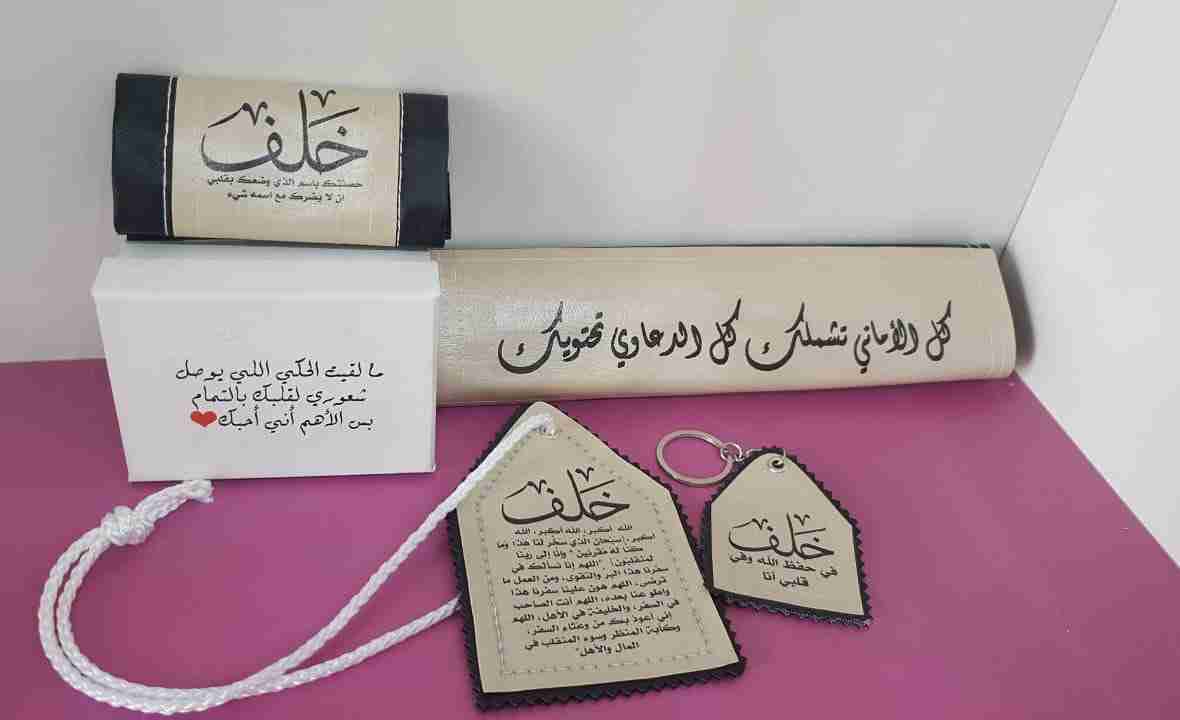 خلف
حصنتك باسم الذي وضعك بقلبي
ان لا يضرك مع اسمه شيء
كل الأماني تشملك كل الدعاوي تحتويك
ما لقيت الحكي اللي يوصل
شعوري لقلبك بالتمام
بس الأهم أني أحبك❤
خلف
الله أكبر، الله أكبر، الله
أكبر، (سبحان الذي سخر لنا هذا وما
كنا له مقرنين* وإنا إلى ربنا
لمنقلبون) "اللهم إنا نسألك في
سفرنا هذا البر والتقوى، ومن العمل ما
ترضى، اللهم هون علينا سفرنا هذا
واطو عنا بعده، اللهم أنت الصاحب
في السفر، والخليفة في الأهل، اللهم
إني أعوذ بك من وعثاء السفر،
وكآبة المنظر وسوء المنقلب في
المال والأهل"
خلف
في حفظ الله وفي
قلبي أنا